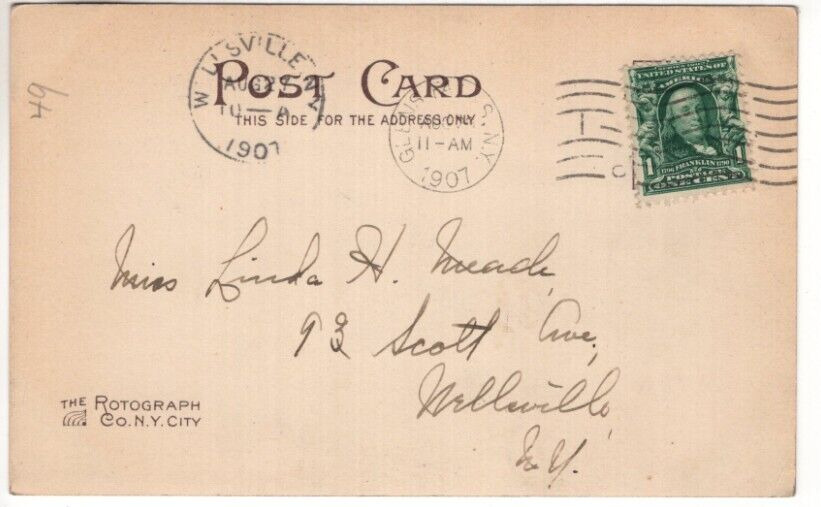 49
WELLSVILLE N.Y.
AUG 2
10-A
1907
POST CARD
THIS SIDE FOR THE ADDRESS ONLY
GLENS N.Y.
11-AM
1907
UNITED STATES OF
AMERICA
1 FRANKLIN 1
1706 1790
ONE CENT
Miss Linda H. Meade,
93 Scott Ave,
Wellsville,
N.Y.
THE ROTOGRAPH
CO. N.Y. CITY